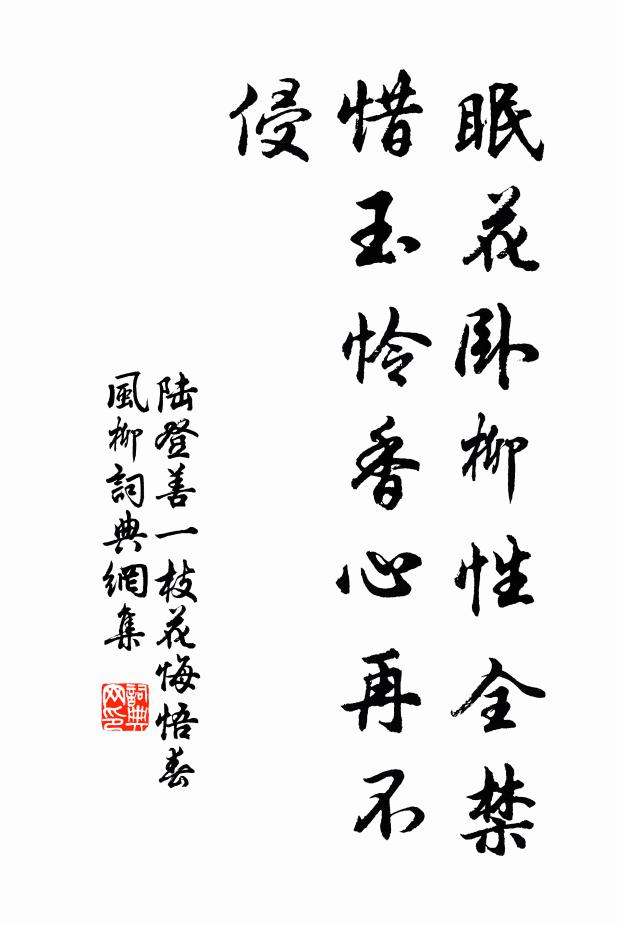 眠花卧柳性全禁
惜玉怜香心再不
侵
陆登善一枝花悔悟春
風柳詞典網集
詞典
网印